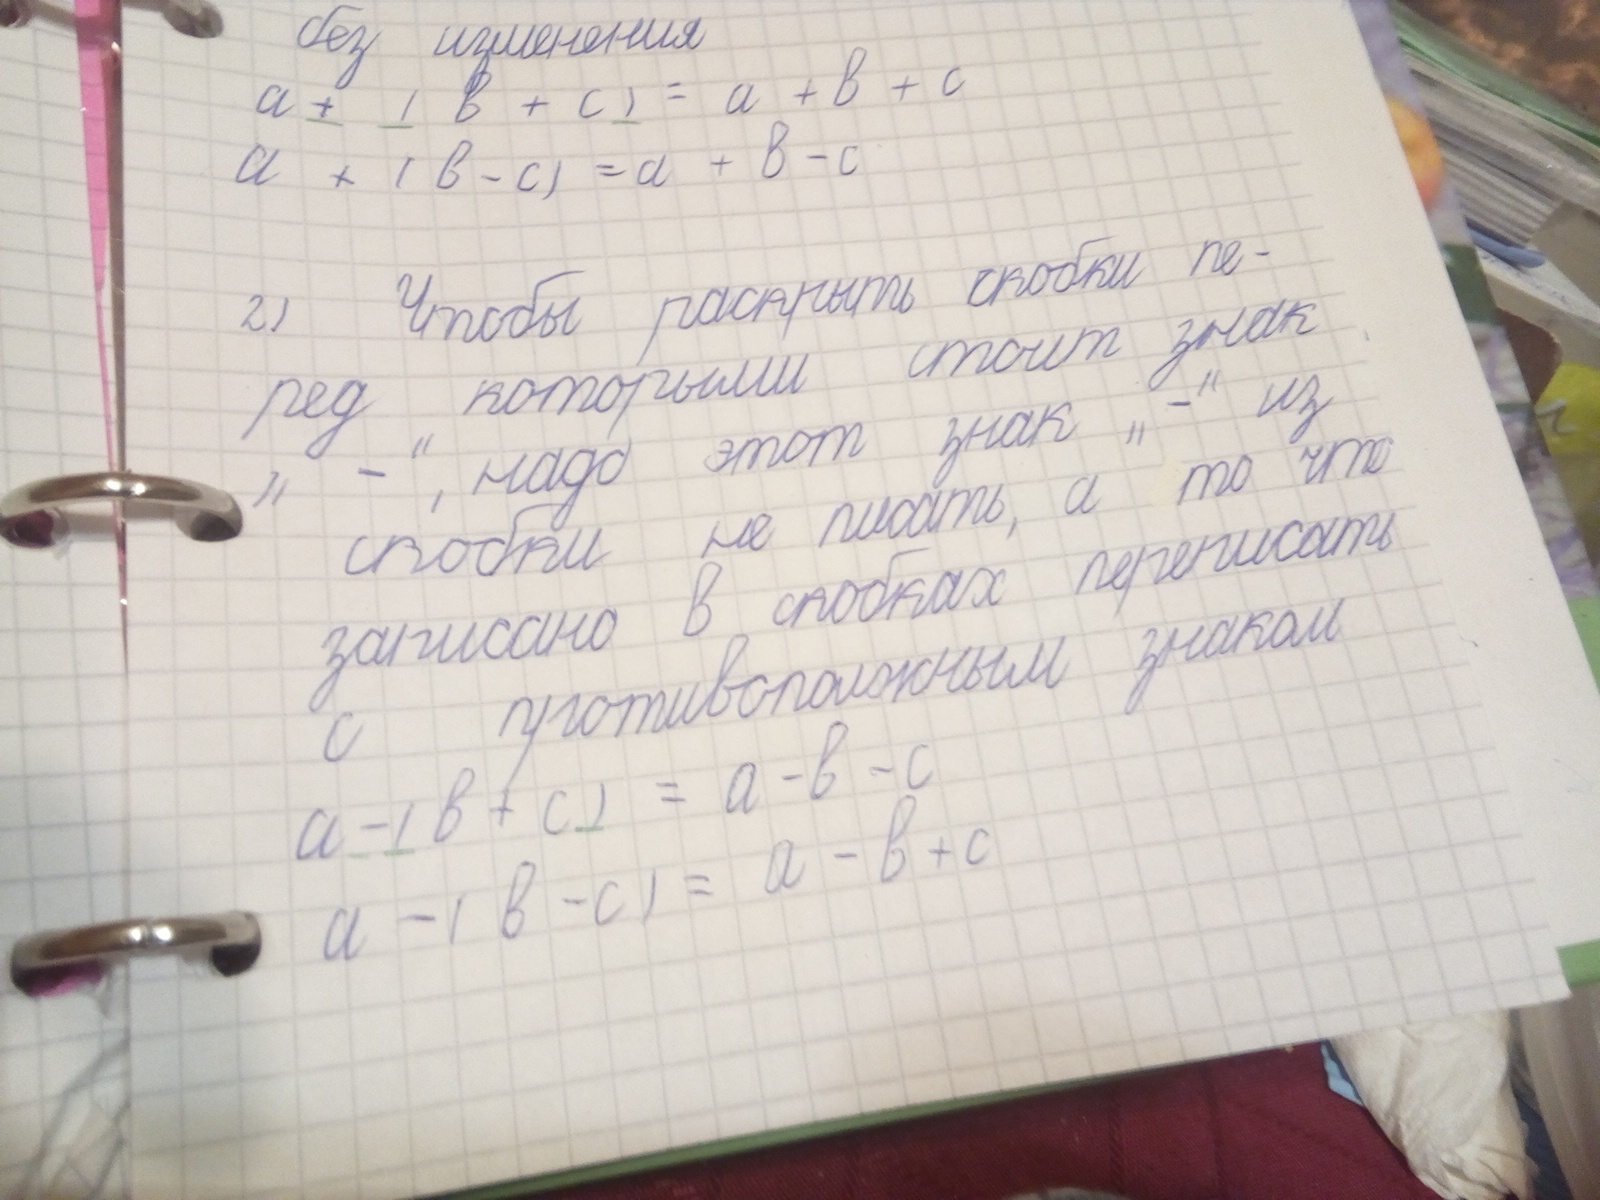 без изменения
а + ( в + с ) = а + в + с
а + ( в - с ) = а + в - с
2) Чтобы раскрыть скобки пе-
ред которыми стоит знак
„ - “, надо этот знак „ - “ из
скобки не писать, а то что
записано в скобках переписать
с противоположным знаком
а - ( в + с ) = а - в - с
а - ( в - с ) = а - в + с